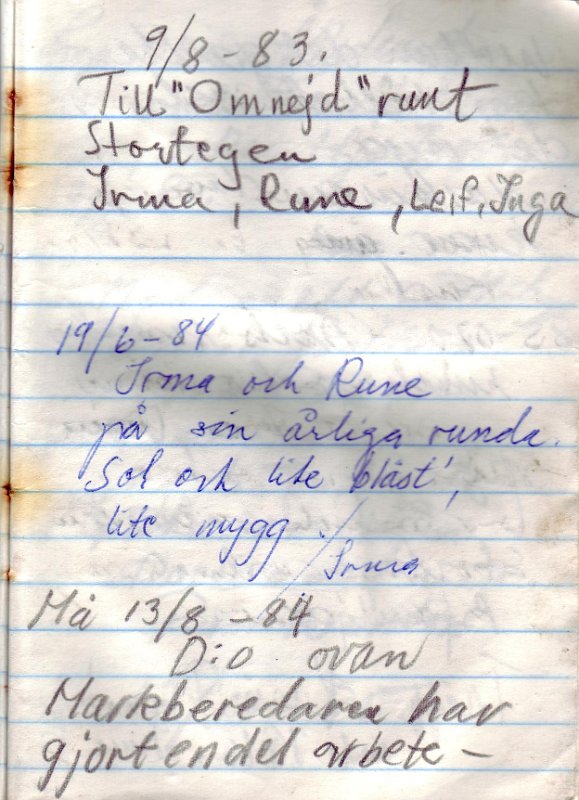 9/8-83.
Till "Omnejd" runt
Stortegen
Irma, Rune, Leif, Inga
19/6-84
Irma och Rune
på sin årliga runda.
Sol och lite blåst,
lite mygg. / Irma
Må 13/8-84
D:o ovan
Markberedaren har
gjort en del arbete-